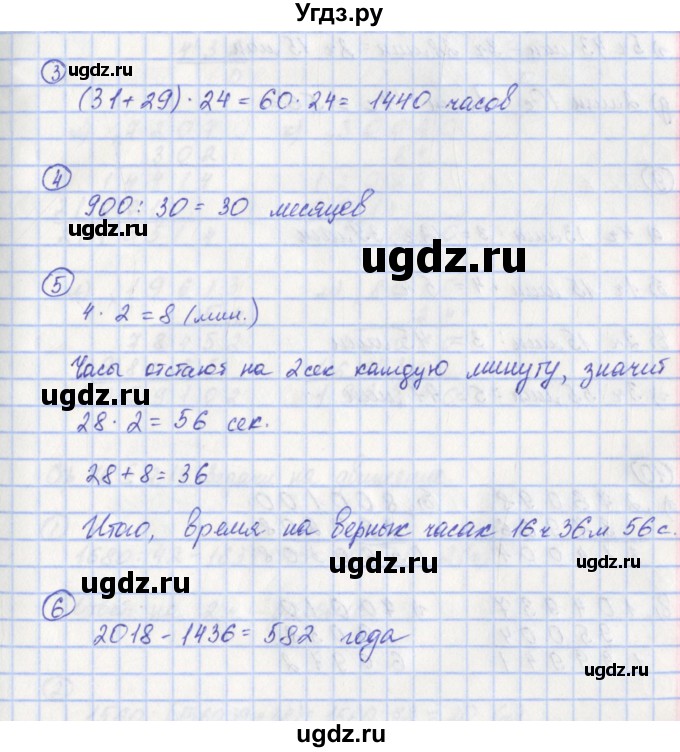 Угдз.ру
ugdz.ru
③
(31+29) · 24 = 60 · 24 = 1440 часов
④
900 : 30 = 30 месяцев
ugdz.ru
ugdz.ru
⑤
4 · 2 = 8 (мин.)
ugdz.ru
ugdz.ru
Часы отстают на 2сек каждую минуту, значит
ugdz.ru
ugdz.ru
28 · 2 = 56 сек.
28 + 8 = 36
Итого, время на верных часах 16ч 36м 56с.
ugdz.ru
ugdz.ru
⑥
2018 - 1436 = 582 года
ugdz.ru
ugdz.ru
Угдз.ру